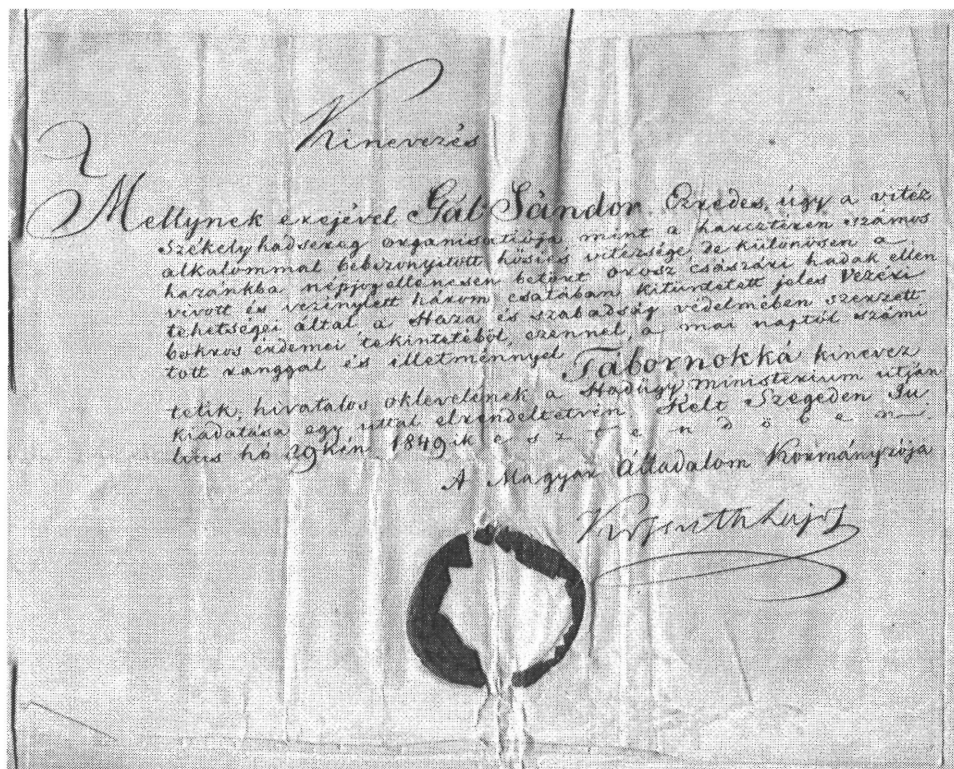 Kinevezés
Mellynek erejével Gál Sándor Ezredes, úgy a vitéz
Székely hadsereg organisatiója mint a harcztéren számos
alkalommal bebizonyított hősies vitézsége, de különösen a
hazánkba népjogellenesen betört orosz császári hadak ellen
vívott és vezénylett három csatában kitüntetett jeles Vezéri
tehetségei által, a Haza és szabadság védelmében szerzett
bokros érdemei tekintetéből, ezennel, a mai naptól számí
tott ranggal és illetménnyel Tábornokká kinevez
tetik, hivatalos oklevelének a Hadügyministerium utján
kiadatása egy uttal elrendeltetvén Kelt Szegeden Ju
lius hó 29kén 1849ik esztendőben
A Magyar Álladalom Kormányzója
Kossuth Lajos